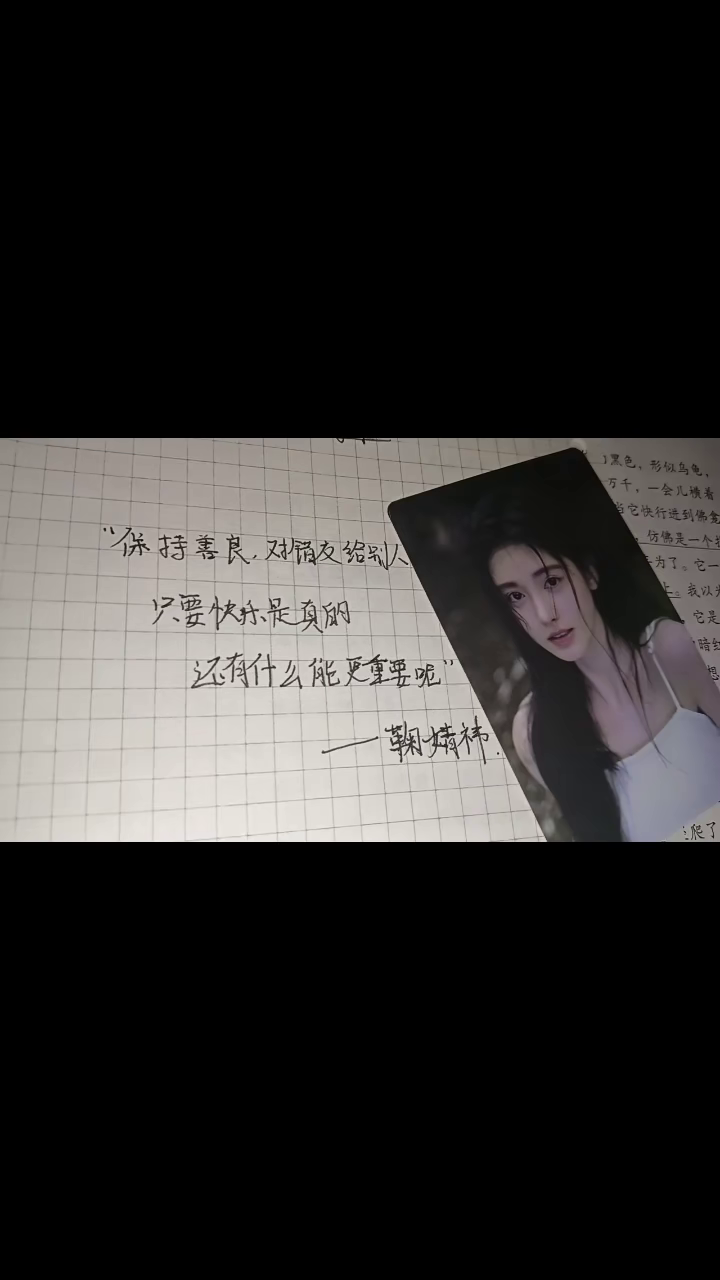 “保持善良,对错交给别人
只要快乐是真的
还有什么能更重要呢”
——鞠婧祎.
黑色,形似乌龟,
万千,一会儿横看
当它快行进到佛龛
,仿佛是一个
为了。它一
上。我以
它是
暗红
想
爬了